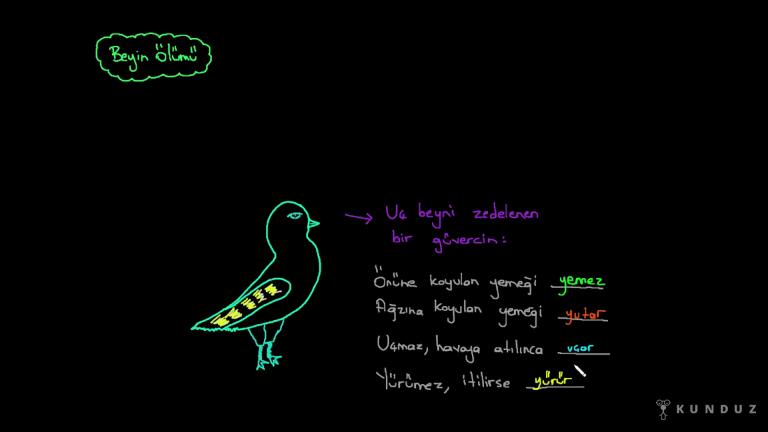 Beyin Ölümü
Uç beyni zedelenen
bir güvercin:
Önüne koyulan yemeği yemez
Ağzına koyulan yemeği yutar
Uçmaz, havaya atılınca uçar
Yürümez, itilirse yürür
KUNDUZ